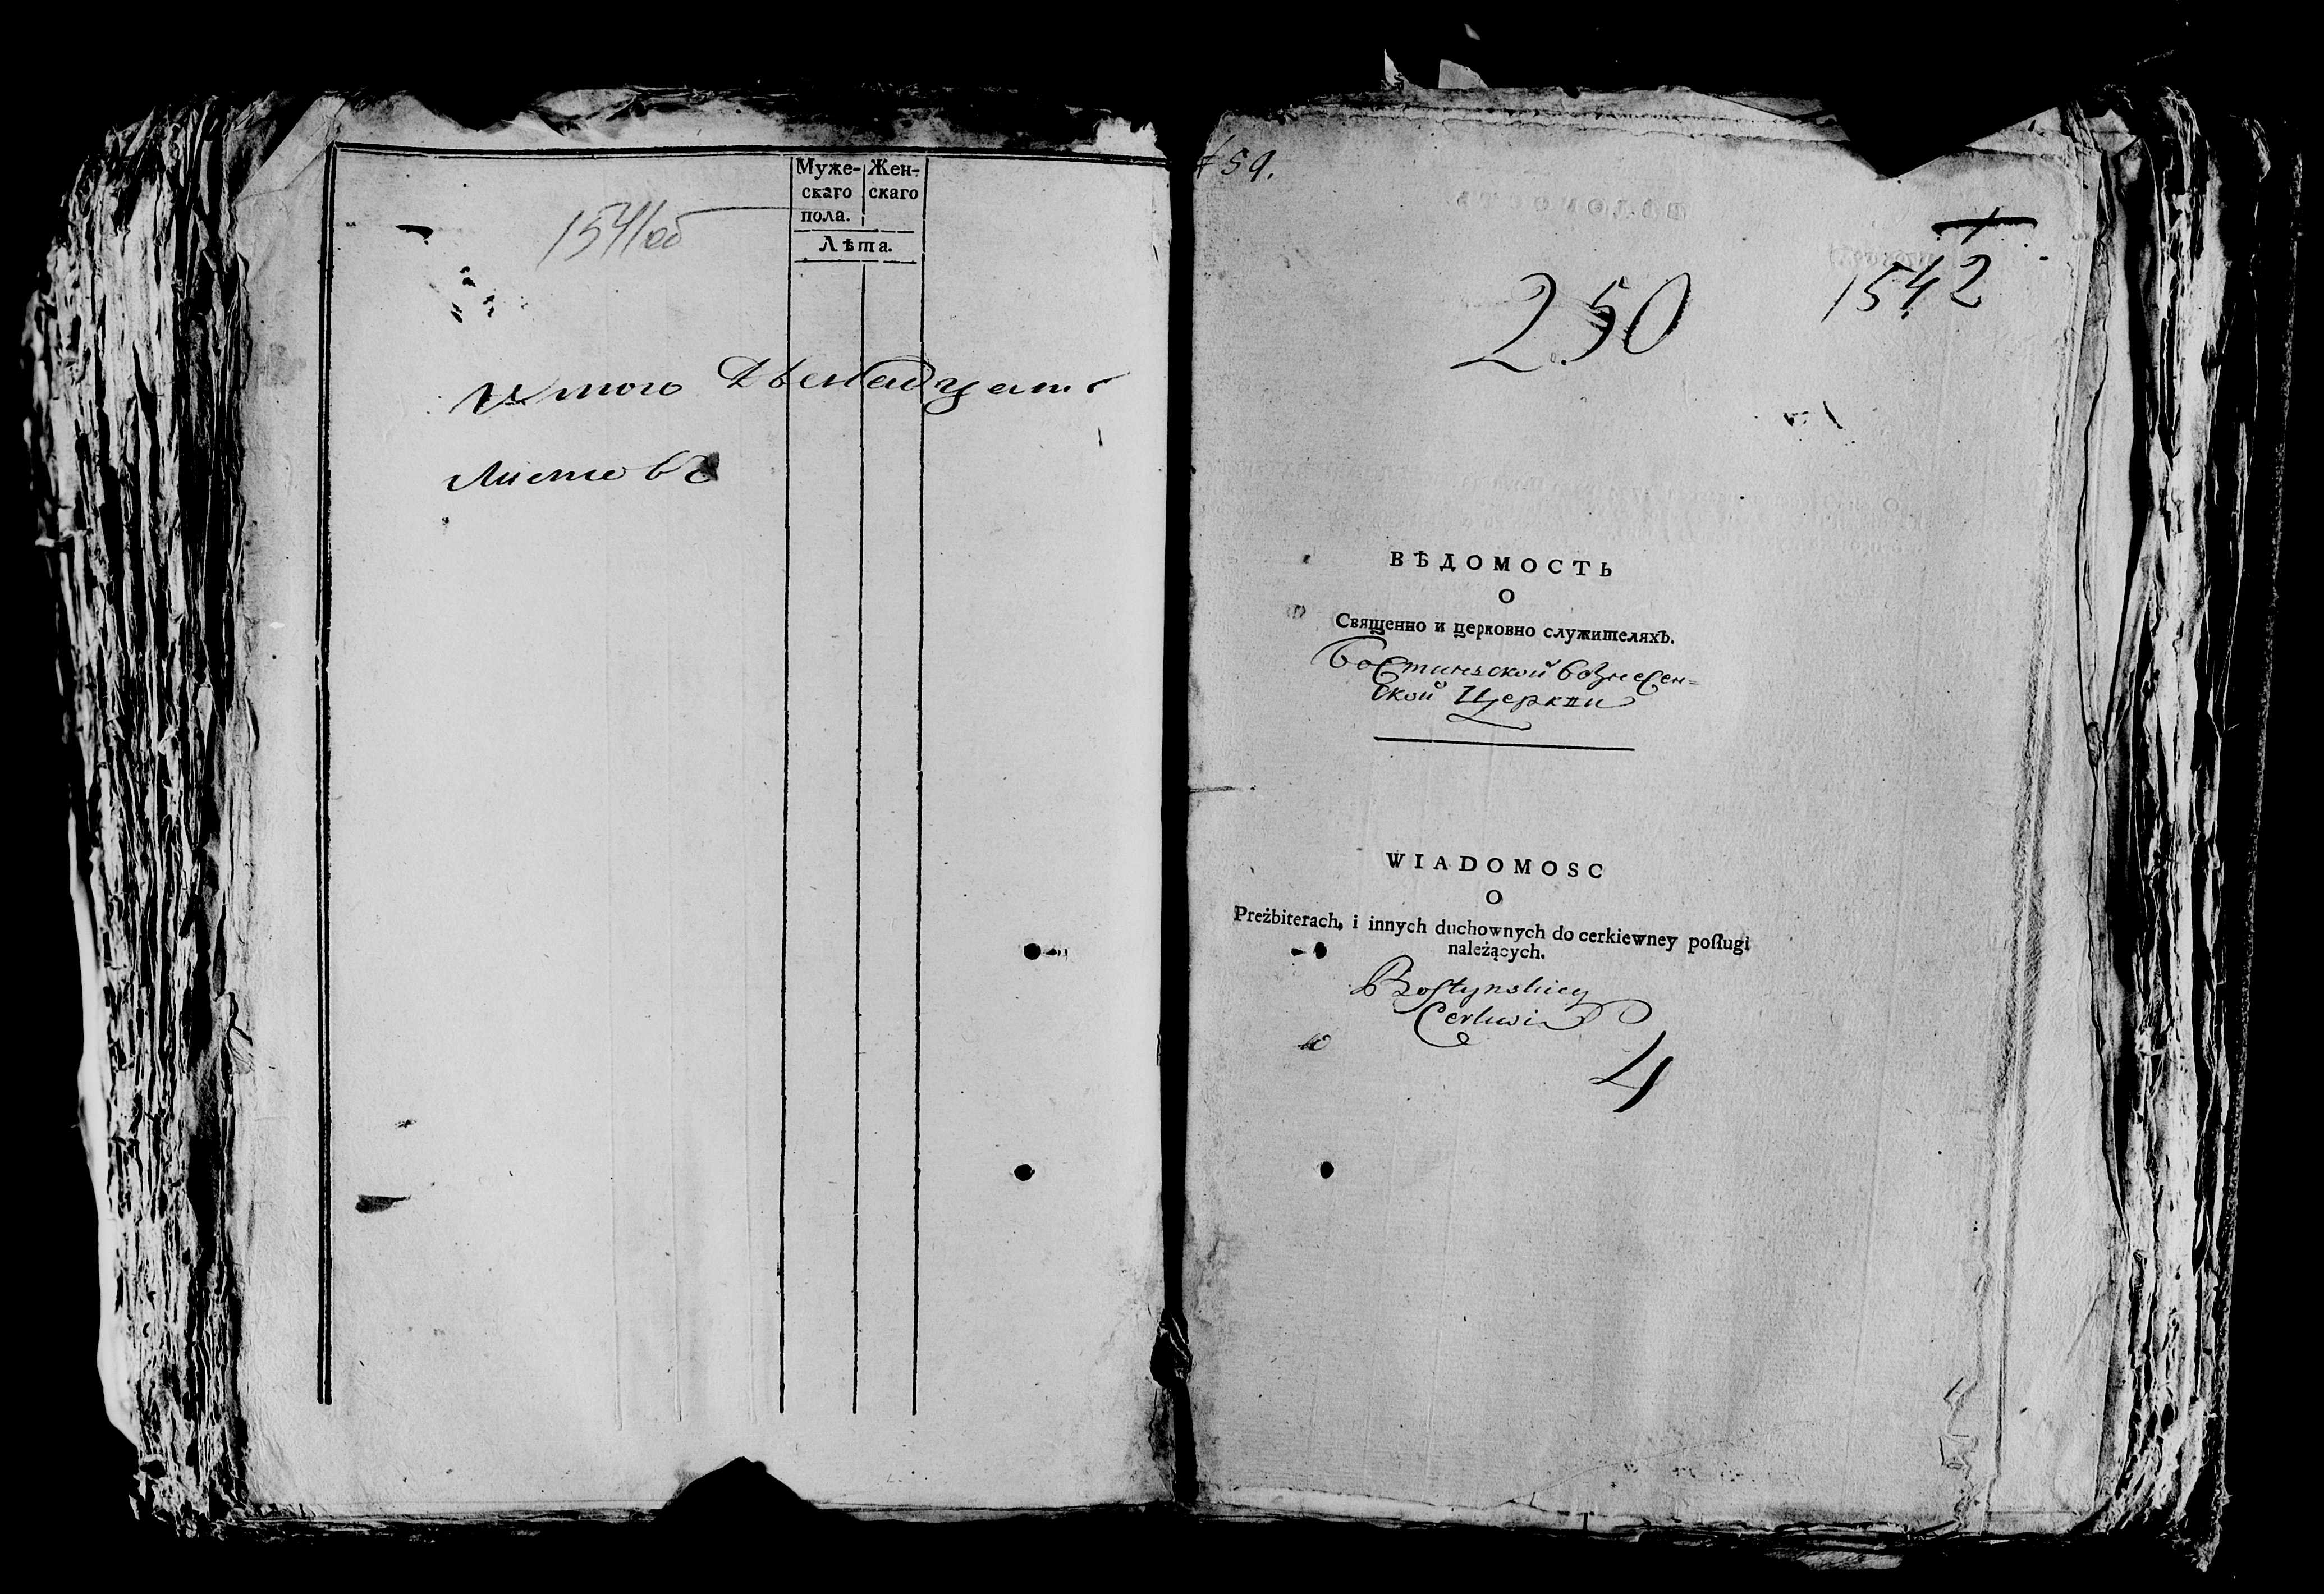 Муже- Жен-
скаго скаго
пола.
Лѣта.
1541/об
Итого Двенадцать
Листовъ
59.
250
1542
ВѢДОМОСТЬ
О
Священно и церковно служителяхъ.
Бостиньской Вознесен=
ской Церкви
WIADOMOSC
O
Preżbiterach, i innych duchownych do cerkiewney poſługi
należących.
Boſtynskiey
Cerkwi
4